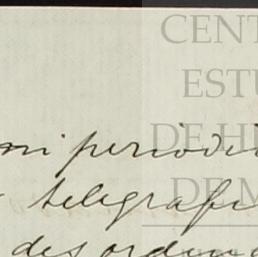 CENT
ESTU
DE H
DE M
mi periodi
telegrafi
desorden